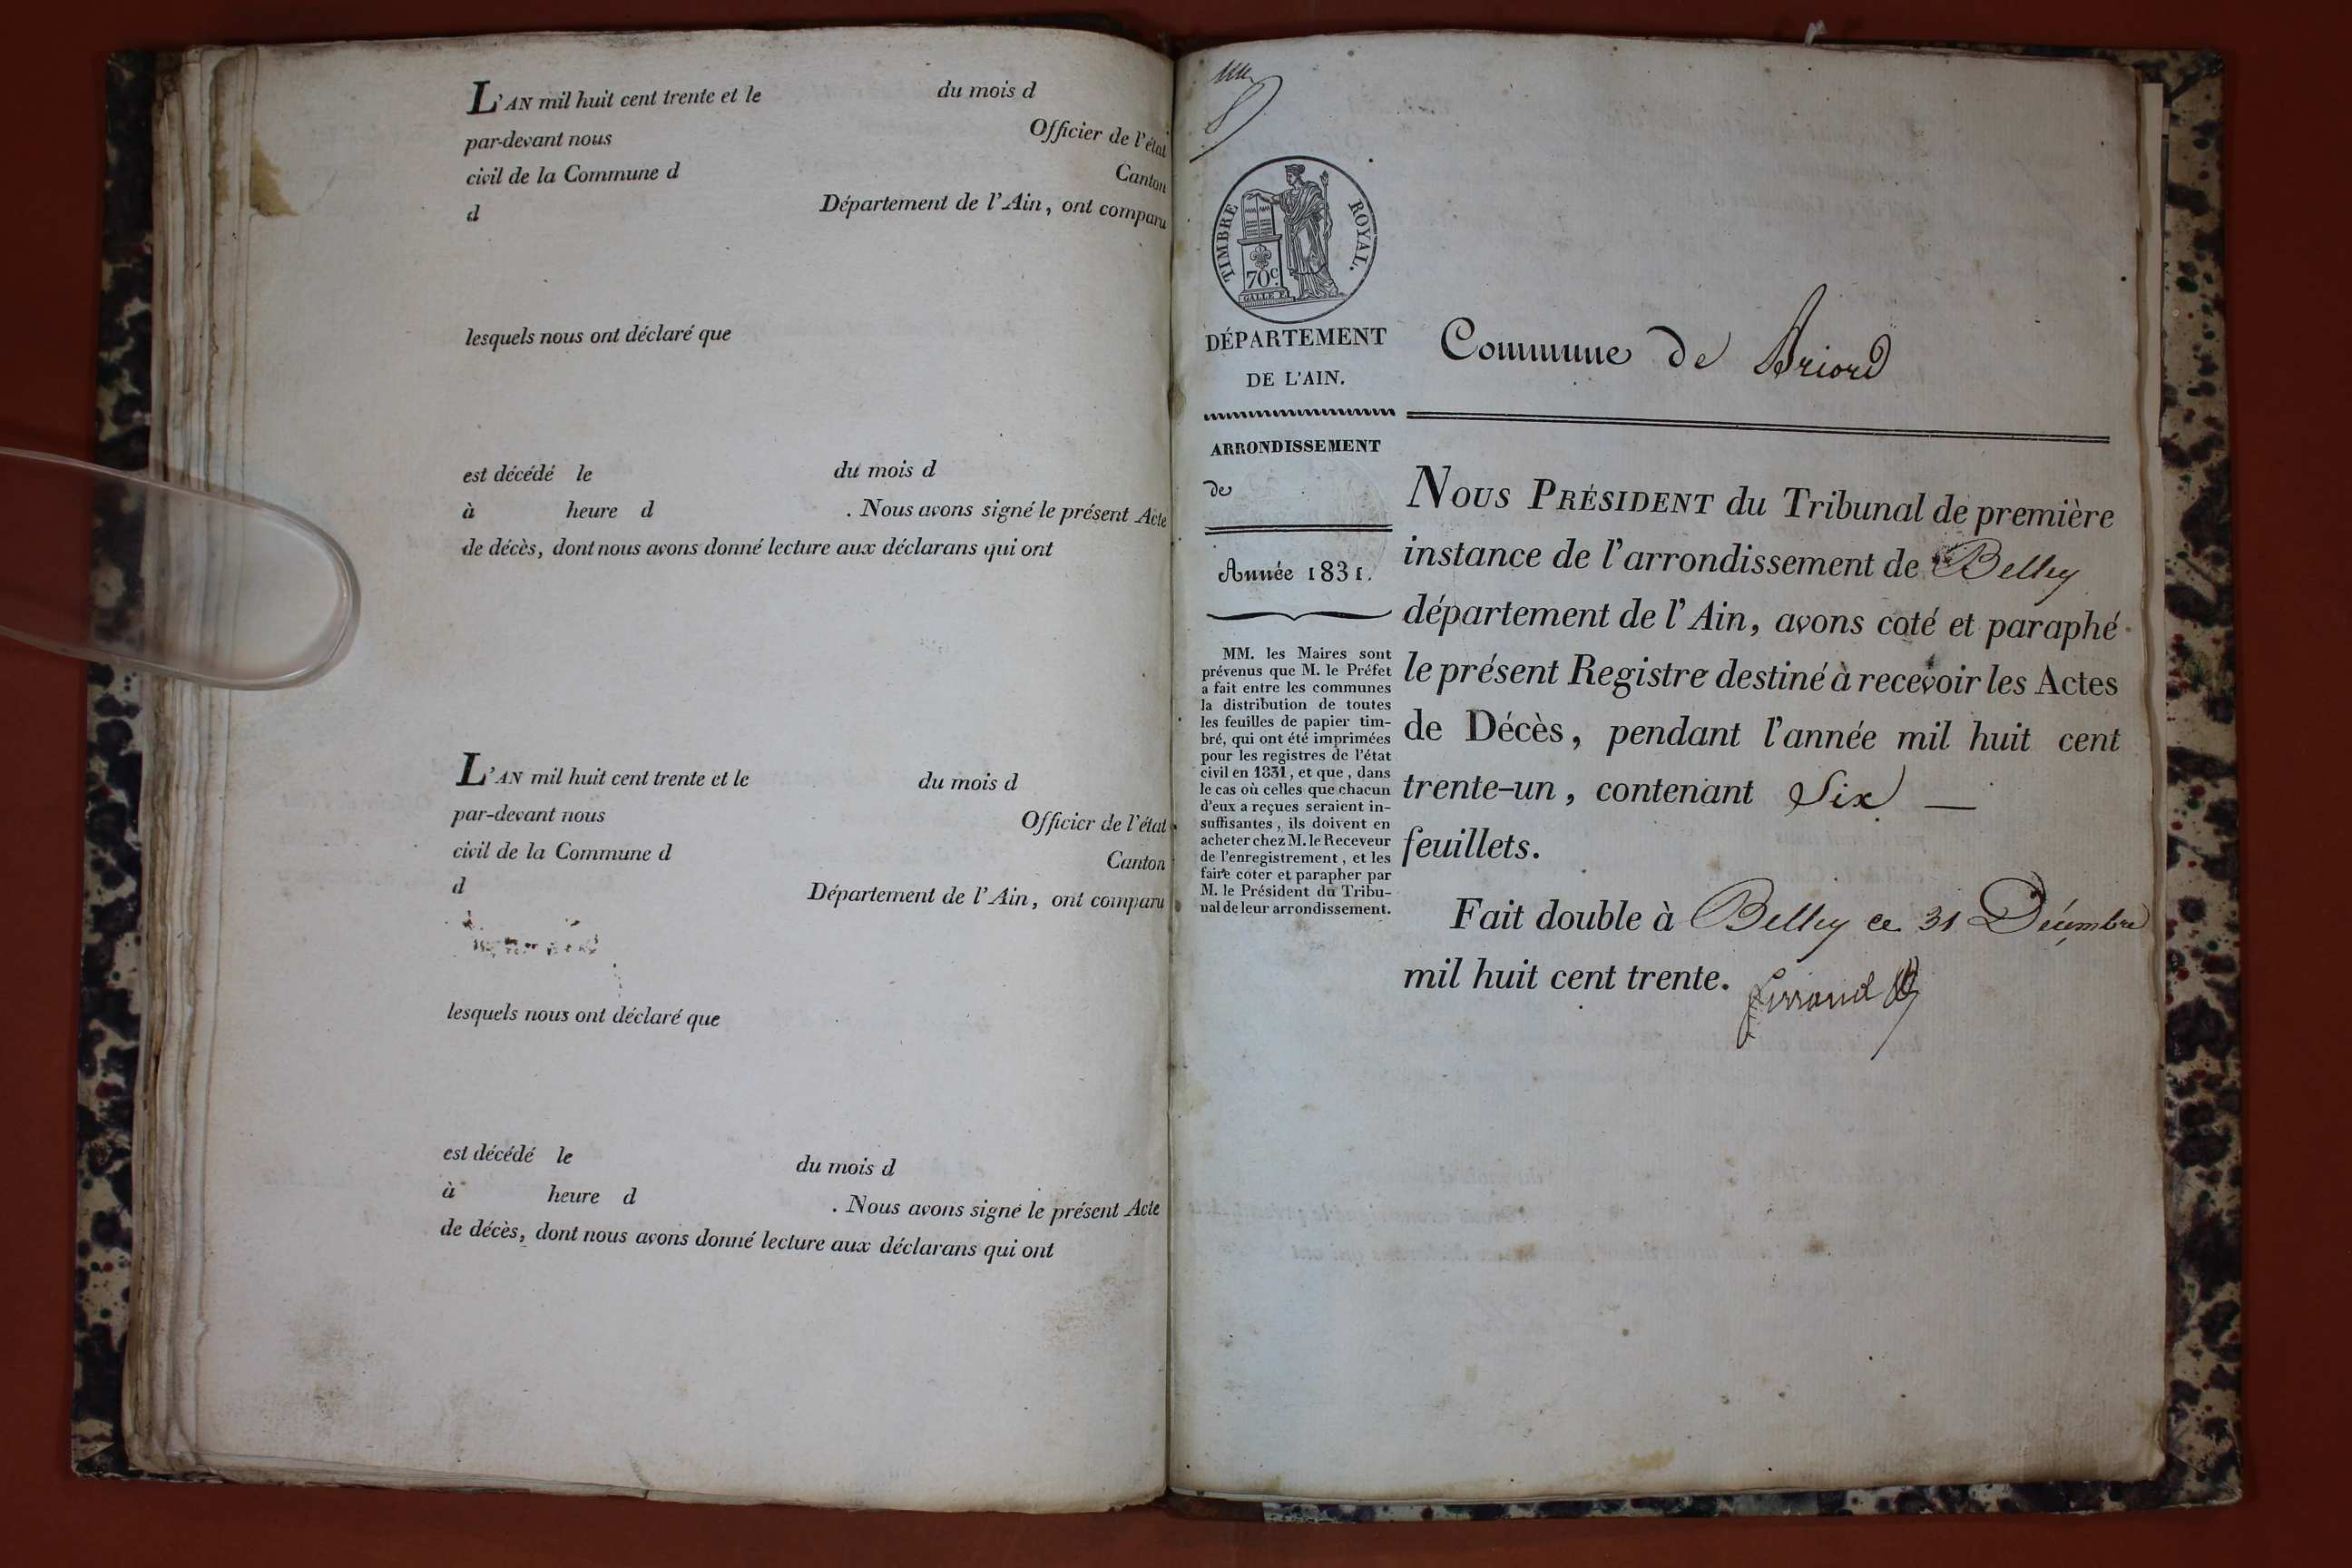 L'AN mil huit cent trente et le du mois d
par-devant nous Officier de l'état
civil de la Commune d Canton
d Département de l'Ain, ont comparu
lesquels nous ont déclaré que
est décédé le du mois d
à heure d . Nous avons signé le présent Acte
de décès, dont nous avons donné lecture aux déclarans qui ont
L'AN mil huit cent trente et le du mois d
par-devant nous Officier de l'état
civil de la Commune d Canton
d Département de l'Ain, ont comparu
lesquels nous ont déclaré que
est décédé le du mois d
à heure d . Nous avons signé le présent Acte
de décès, dont nous avons donné lecture aux déclarans qui ont
TIMBRE ROYAL.
70c.
GALLE F.
DÉPARTEMENT
DE L'AIN.
ARRONDISSEMENT
de
Année 1831.
MM. les Maires sont
prévenus que M. le Préfet
a fait entre les communes
la distribution de toutes
les feuilles de papier tim-
bré, qui ont été imprimées
pour les registres de l'état
civil en 1831, et que, dans
le cas où celles que chacun
d'eux a reçues seraient in-
suffisantes, ils doivent en
acheter chez M. le Receveur
de l'enregistrement, et les
faire coter et parapher par
M. le Président du Tribu-
nal de leur arrondissement.
Commune de Briord
NOUS PRÉSIDENT du Tribunal de première
instance de l'arrondissement de Belley
département de l'Ain, avons coté et paraphé
le présent Registre destiné à recevoir les Actes
de Décès, pendant l'année mil huit cent
trente-un, contenant Six —
feuillets.
Fait double à Belley ce 31 Décembre
mil huit cent trente.